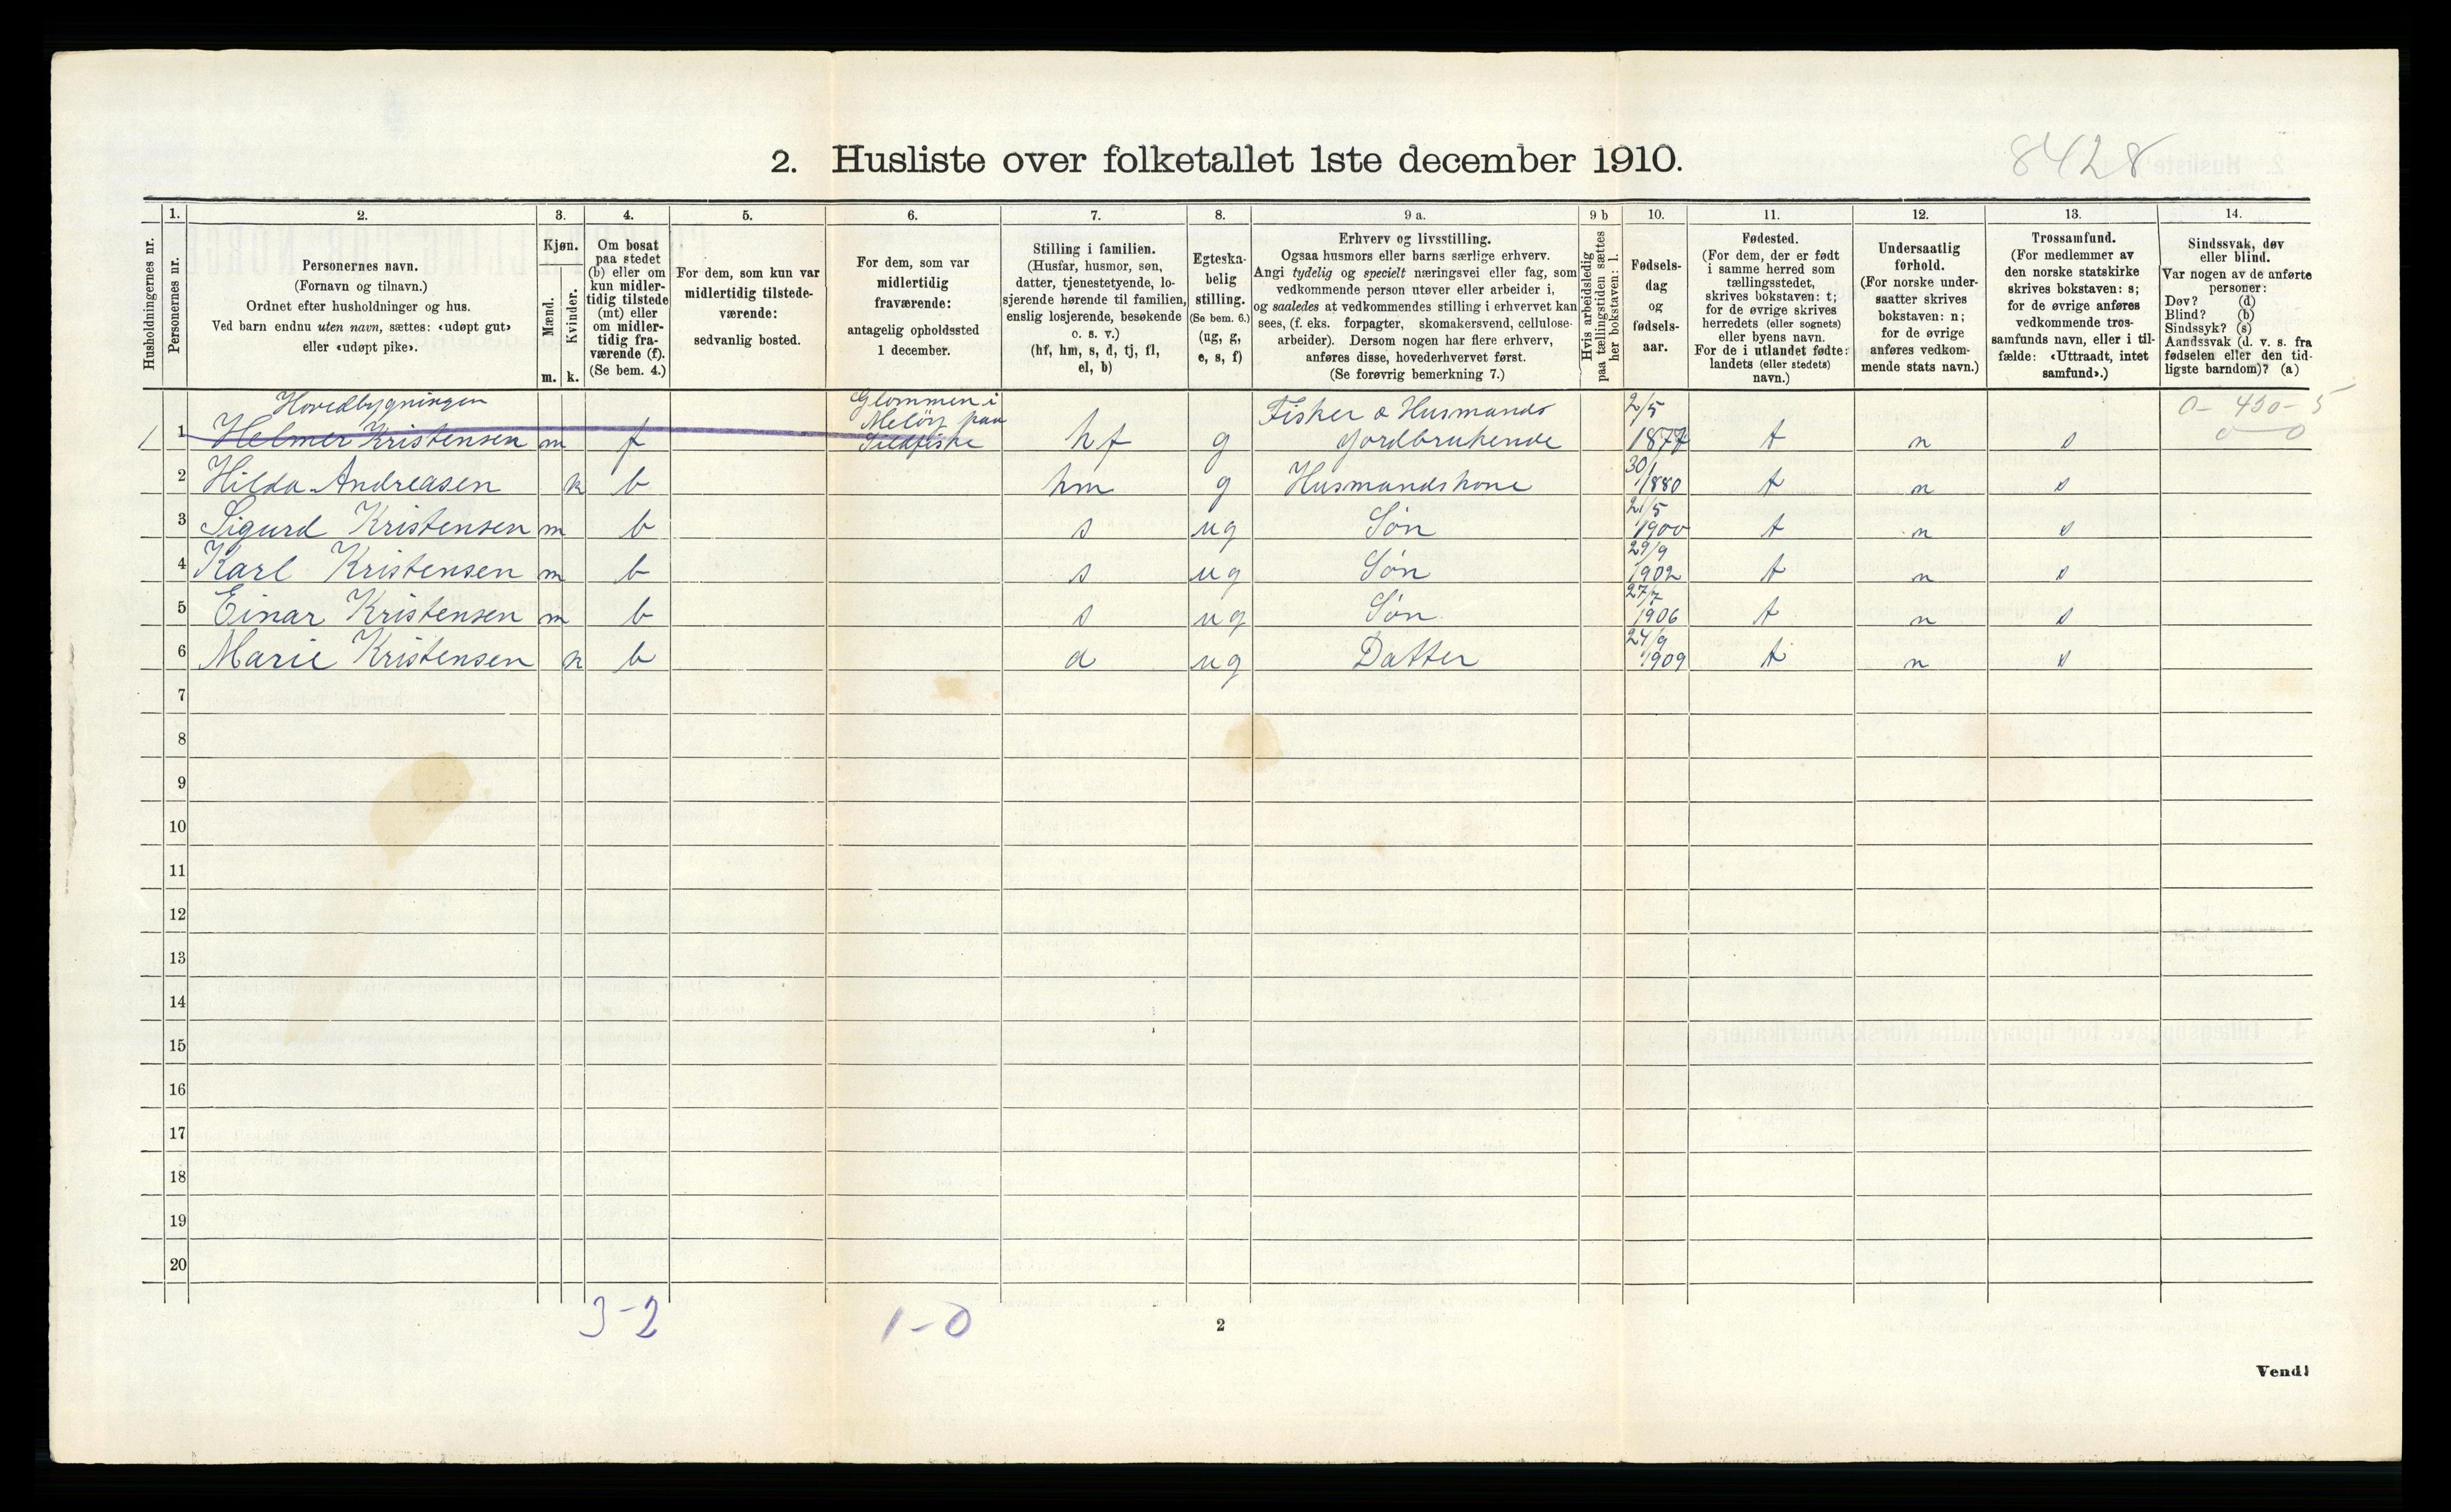 2. Husliste over folketallet 1ste december 1910.
8428
Husholdningernes nr.
1.
Personernes nr.
2.
Personernes navn.
(Fornavn og tilnavn.)
Ordnet efter husholdninger og hus.
Ved barn endnu uten navn, sættes: «udøpt gut»
eller «udøpt pike».
3.
Kjøn.
Mænd.
Kvinder.
m. k.
4.
Om bosat
paa stedet
(b) eller om
kun midler-
tidig tilstede
(mt) eller
om midler-
tidig fra-
værende (f).
(Se bem. 4.)
5.
For dem, som kun var
midlertidig tilstede-
værende:
sedvanlig bosted.
6.
For dem, som var
midlertidig
fraværende:
antagelig opholdssted
1 december.
7.
Stilling i familien.
(Husfar, husmor, søn,
datter, tjenestetyende, lo-
sjerende hørende til familien,
enslig losjerende, besøkende
o. s. v.)
(hf, hm, s, d, tj, fl,
el, b)
8.
Egteska-
belig
stilling.
(Se bem. 6.)
(ug, g,
e, s, f)
9 a.
Erhverv og livsstilling.
Ogsaa husmors eller barns særlige erhverv.
Angi tydelig og specielt næringsvei eller fag, som
vedkommende person utøver eller arbeider i,
og saaledes at vedkommendes stilling i erhvervet kan
sees, (f. eks. forpagter, skomakersvend, cellulose-
arbeider). Dersom nogen har flere erhverv,
anføres disse, hovederhvervet først.
(Se forøvrig bemerkning 7.)
9 b
Hvis arbeidsledig
paa tællingstiden sættes
her bokstaven: l.
10.
Fødsels-
dag
og
fødsels-
aar.
11.
Fødested.
(For dem, der er født
i samme herred som
tællingsstedet,
skrives bokstaven: t;
for de øvrige skrives
herredets (eller sognets)
eller byens navn.
For de i utlandet fødte:
landets (eller stedets)
navn.)
12.
Undersaatlig
forhold.
(For norske under-
saatter skrives
bokstaven: n;
for de øvrige
anføres vedkom-
mende stats navn.)
13.
Trossamfund.
(For medlemmer av
den norske statskirke
skrives bokstaven: s;
for de øvrige anføres
vedkommende tros-
samfunds navn, eller i til-
fælde: «Uttraadt, intet
samfund».)
14.
Sindssvak, døv
eller blind.
Var nogen av de anførte
personer:
Døv? (d)
Blind? (b)
Sindssyk? (s)
Aandssvak (d. v. s. fra
fødselen eller den tid-
ligste barndom)? (a)
Hovedbygningen
Glommen i
Melöy paa
Fisker & Husmands 2/5
0-450-5
1 1 Helmer Kristensen m f Sildfiske hf g Jordbrukende 1877 t n s 0 0
30/1
2 Hilda Andreasen k b hm g Husmandskone 1880 t n s
21/5
3 Sigurd Kristensen m b s ug Søn 1900 t n s
29/9
4 Karl Kristensen m b s ug Søn 1902 t n s
27/7
5 Einar Kristensen m b s ug Søn 1906 t n s
24/9
6 Marie Kristensen k b d ug Datter 1909 t n s
7
8
9
10
11
12
13
14
15
16
17
18
19
20
3-2 1-0
2
Vend!